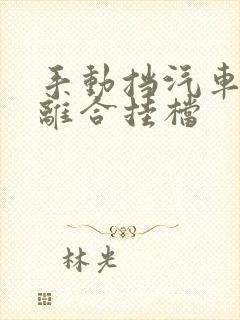 手動挡汽車
離合挂檔
林光